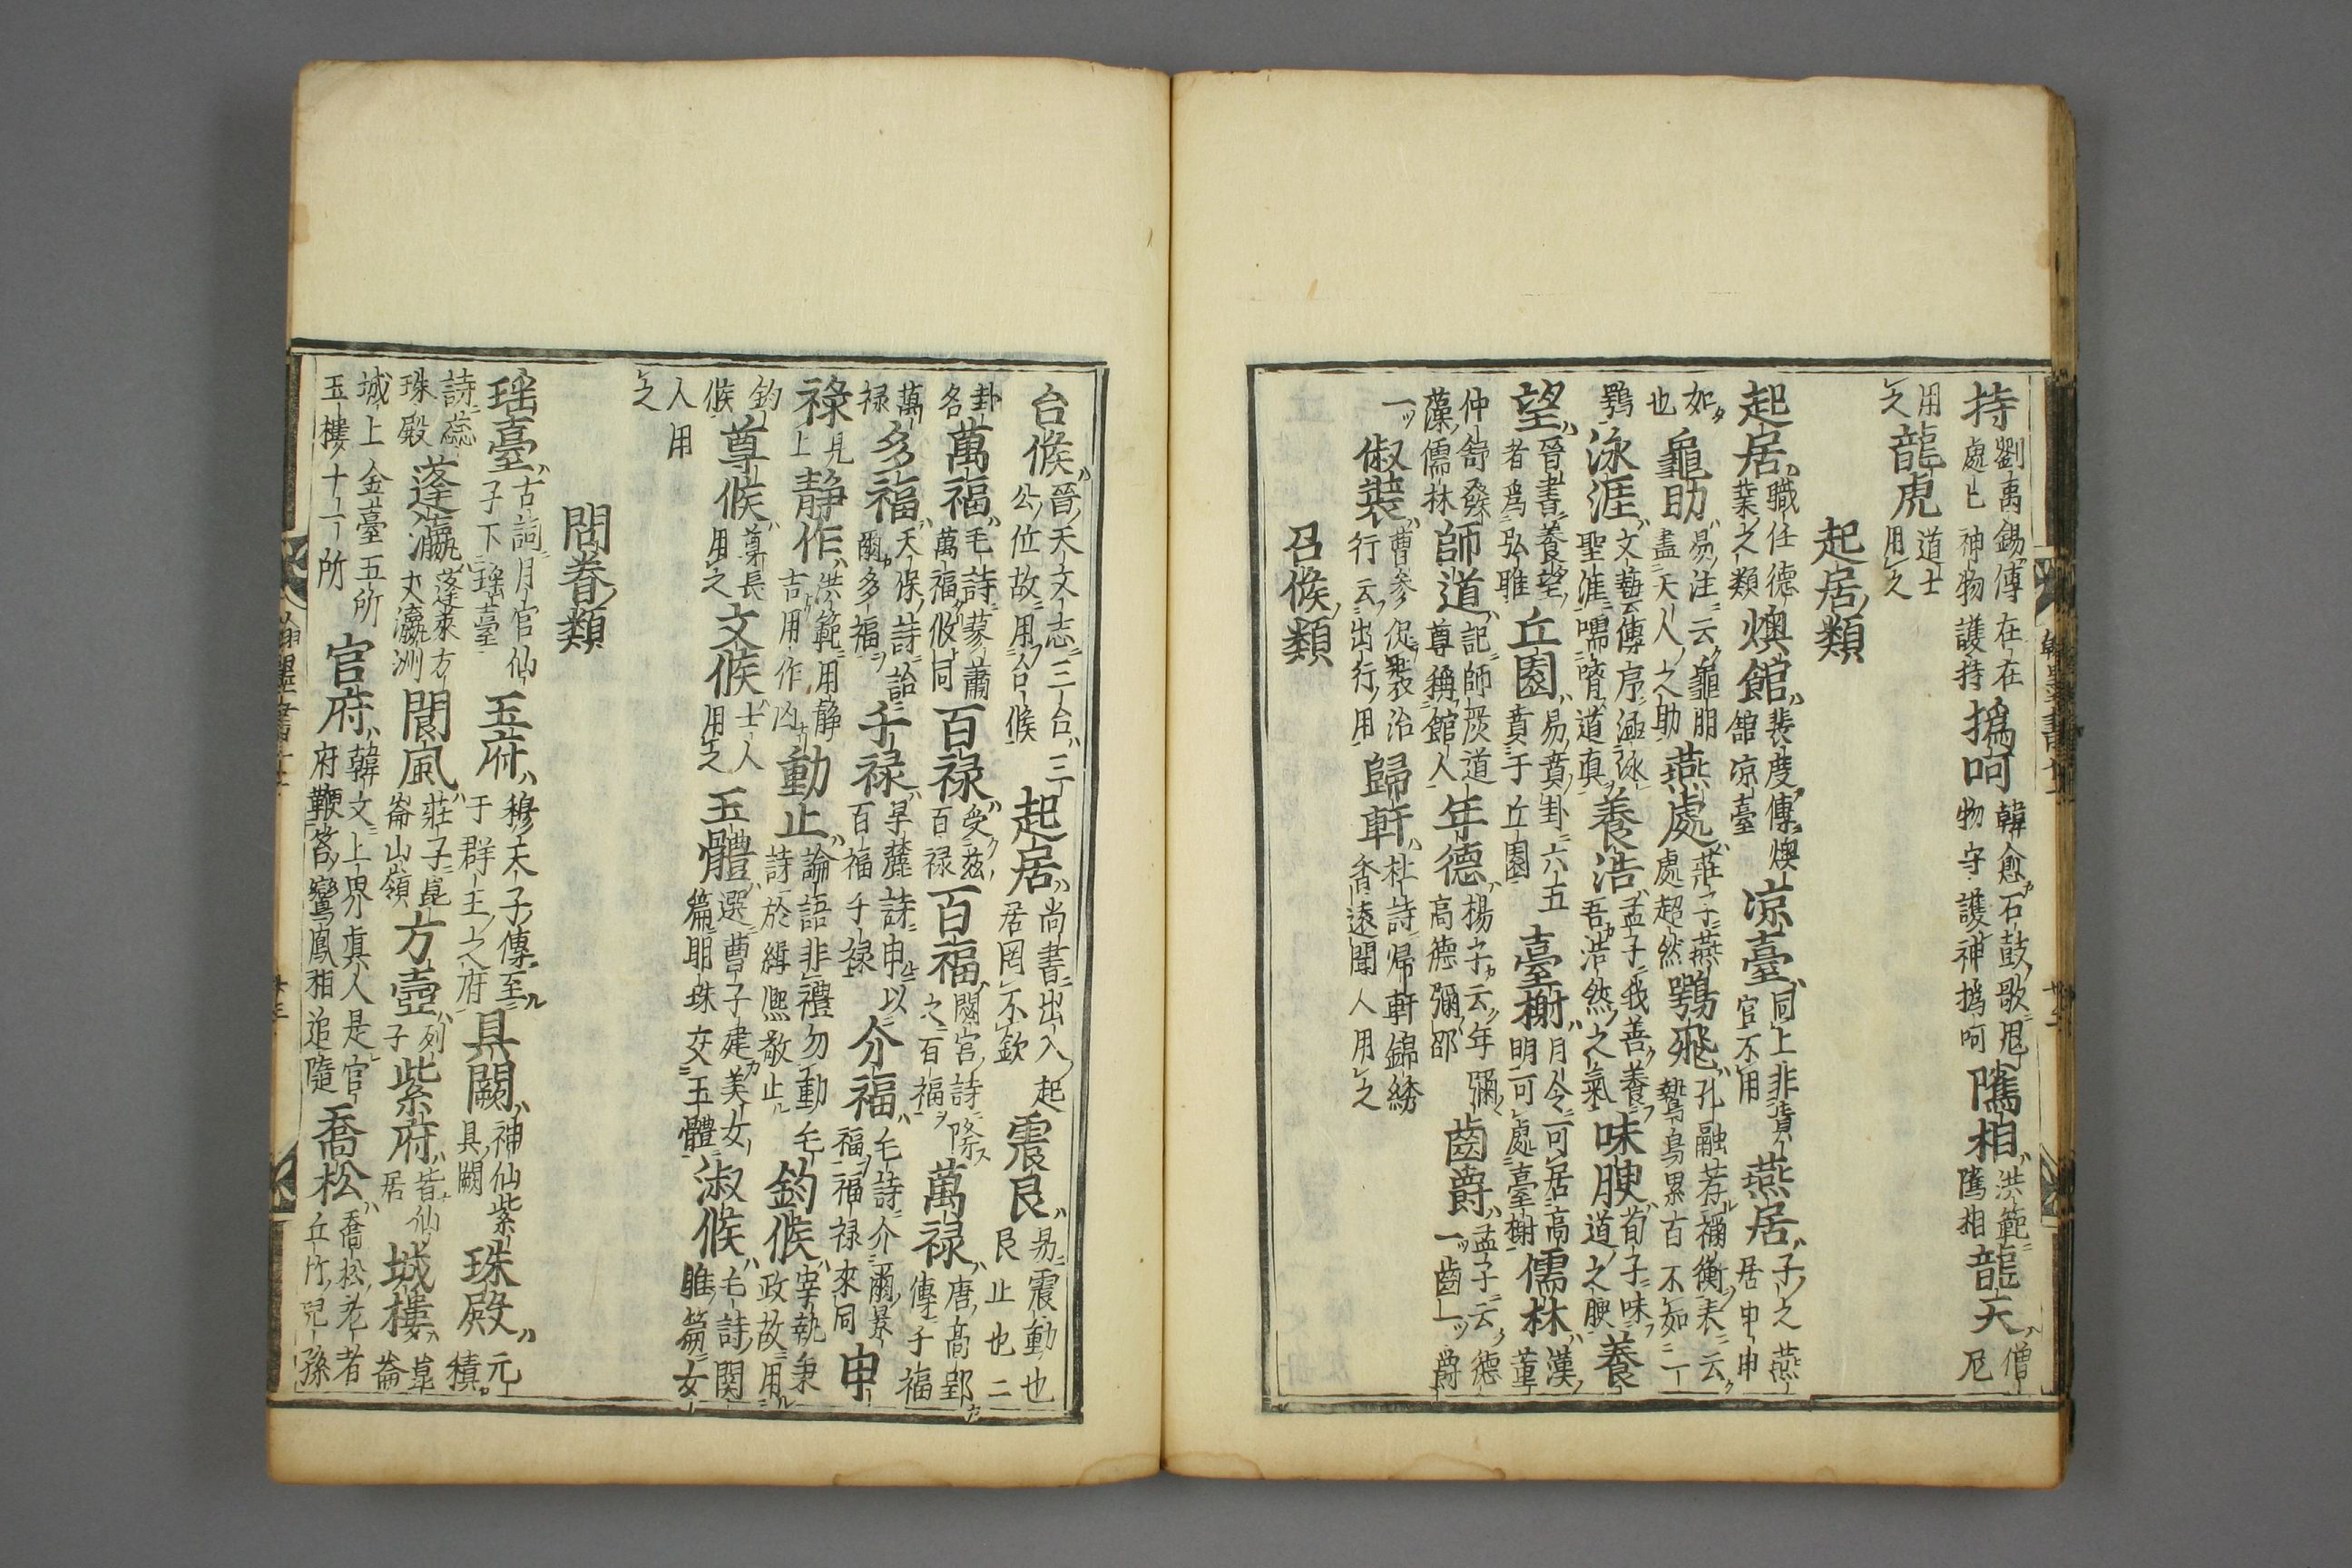 持 劉禹錫傳在在處亡神物護持 撝呵 韓愈石鼓歌鬼物守護神撝呵 隲相 洪範隲相 龍天 僧尼
用之 龍虎 道士用之
起居類
起居 職任德業之類 燠館 裴度傳燠館凉臺 凉臺 同上非貴官不用 燕居 子之燕居申申
如也 龜助 易注云龜朋盡天人之助 燕處 莊子燕處超然 鶚飛 孔融荐禰衡表云鷙鳥累百不如一
鶚 泳涯 文藝傳序涵泳聖涯嚅嚌道真 養浩 孟子我善養吾浩然之氣 味腴 荀子味道之腴 養
望 晉書養望者爲弘雅 丘園 易賁卦六五賁于丘園 臺榭 月令可居高明可處臺榭 儒林 漢董
仲舒發藻儒林 師道 記師嚴道尊稱館人 年德 楊子云年彌高德彌卲 齒爵 孟子云德一齒一爵
一 俶裝 曹參促裝治行云出行用 歸軒 杜詩歸軒錦綉香遠聞人用之
召候類
台候 晉天文志三台三公位故用台候 起居 尚書出入起居罔不欽 震艮 易震動也艮止也二
卦各 萬福 毛詩蓼蕭萬福攸同 百禄 受茲百禄 百福 閟宮詩降之百福 萬禄 唐高郢傳千福
萬禄 多福 天保詩詒爾多福 千禄 旱麓詩千禄百福 介福 毛詩介爾景福福禄來同 申
禄 見上 静作 洪範用静吉用作凶 動止 論語非禮勿動毛詩於緝熙敬止 鈞候 宰執秉政故用
鈞候 尊候 尊長用之 文候 士人用之 玉體 選曹子建美女篇明珠交玉體 淑候 毛詩関雎篇女
人用之
問眷類
瑶臺 古詞月宮仙子下瑶臺 玉府 穆天子傳至于群玉之府 具闕 神仙紫具闕 珠殿 元稹
詩蕊珠殿 蓬瀛 蓬萊方丈瀛洲 閬風 莊子崑崙山嶺 方壺 列子 紫府 皆仙居 城樓 崑崙
城上金臺五所玉樓十二所 官府 韓文上界真人是官府鞭笞鸞鳳相追隨 喬松 喬松老者丘竹兒孫